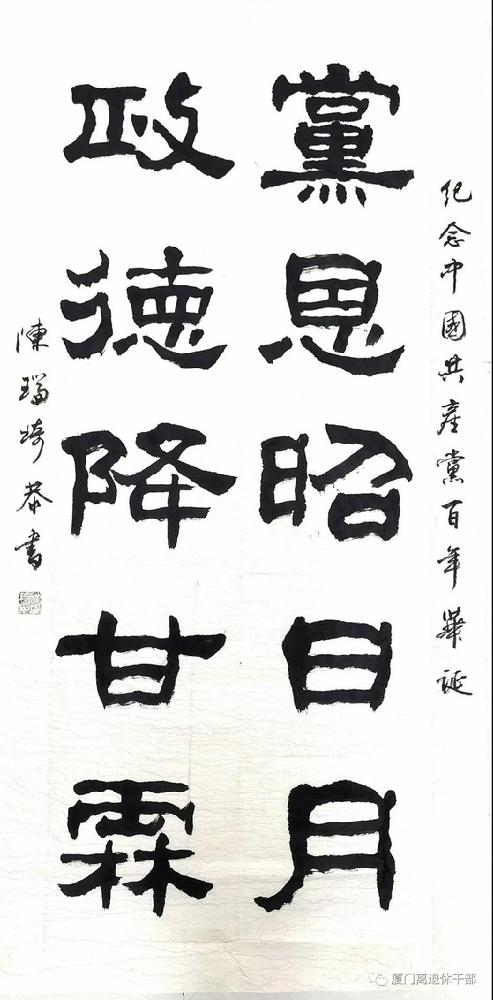 纪念中國共產黨百年華诞
黨恩昭日月
政德降甘霖
陳瑞琦恭書
厦门离退休干部